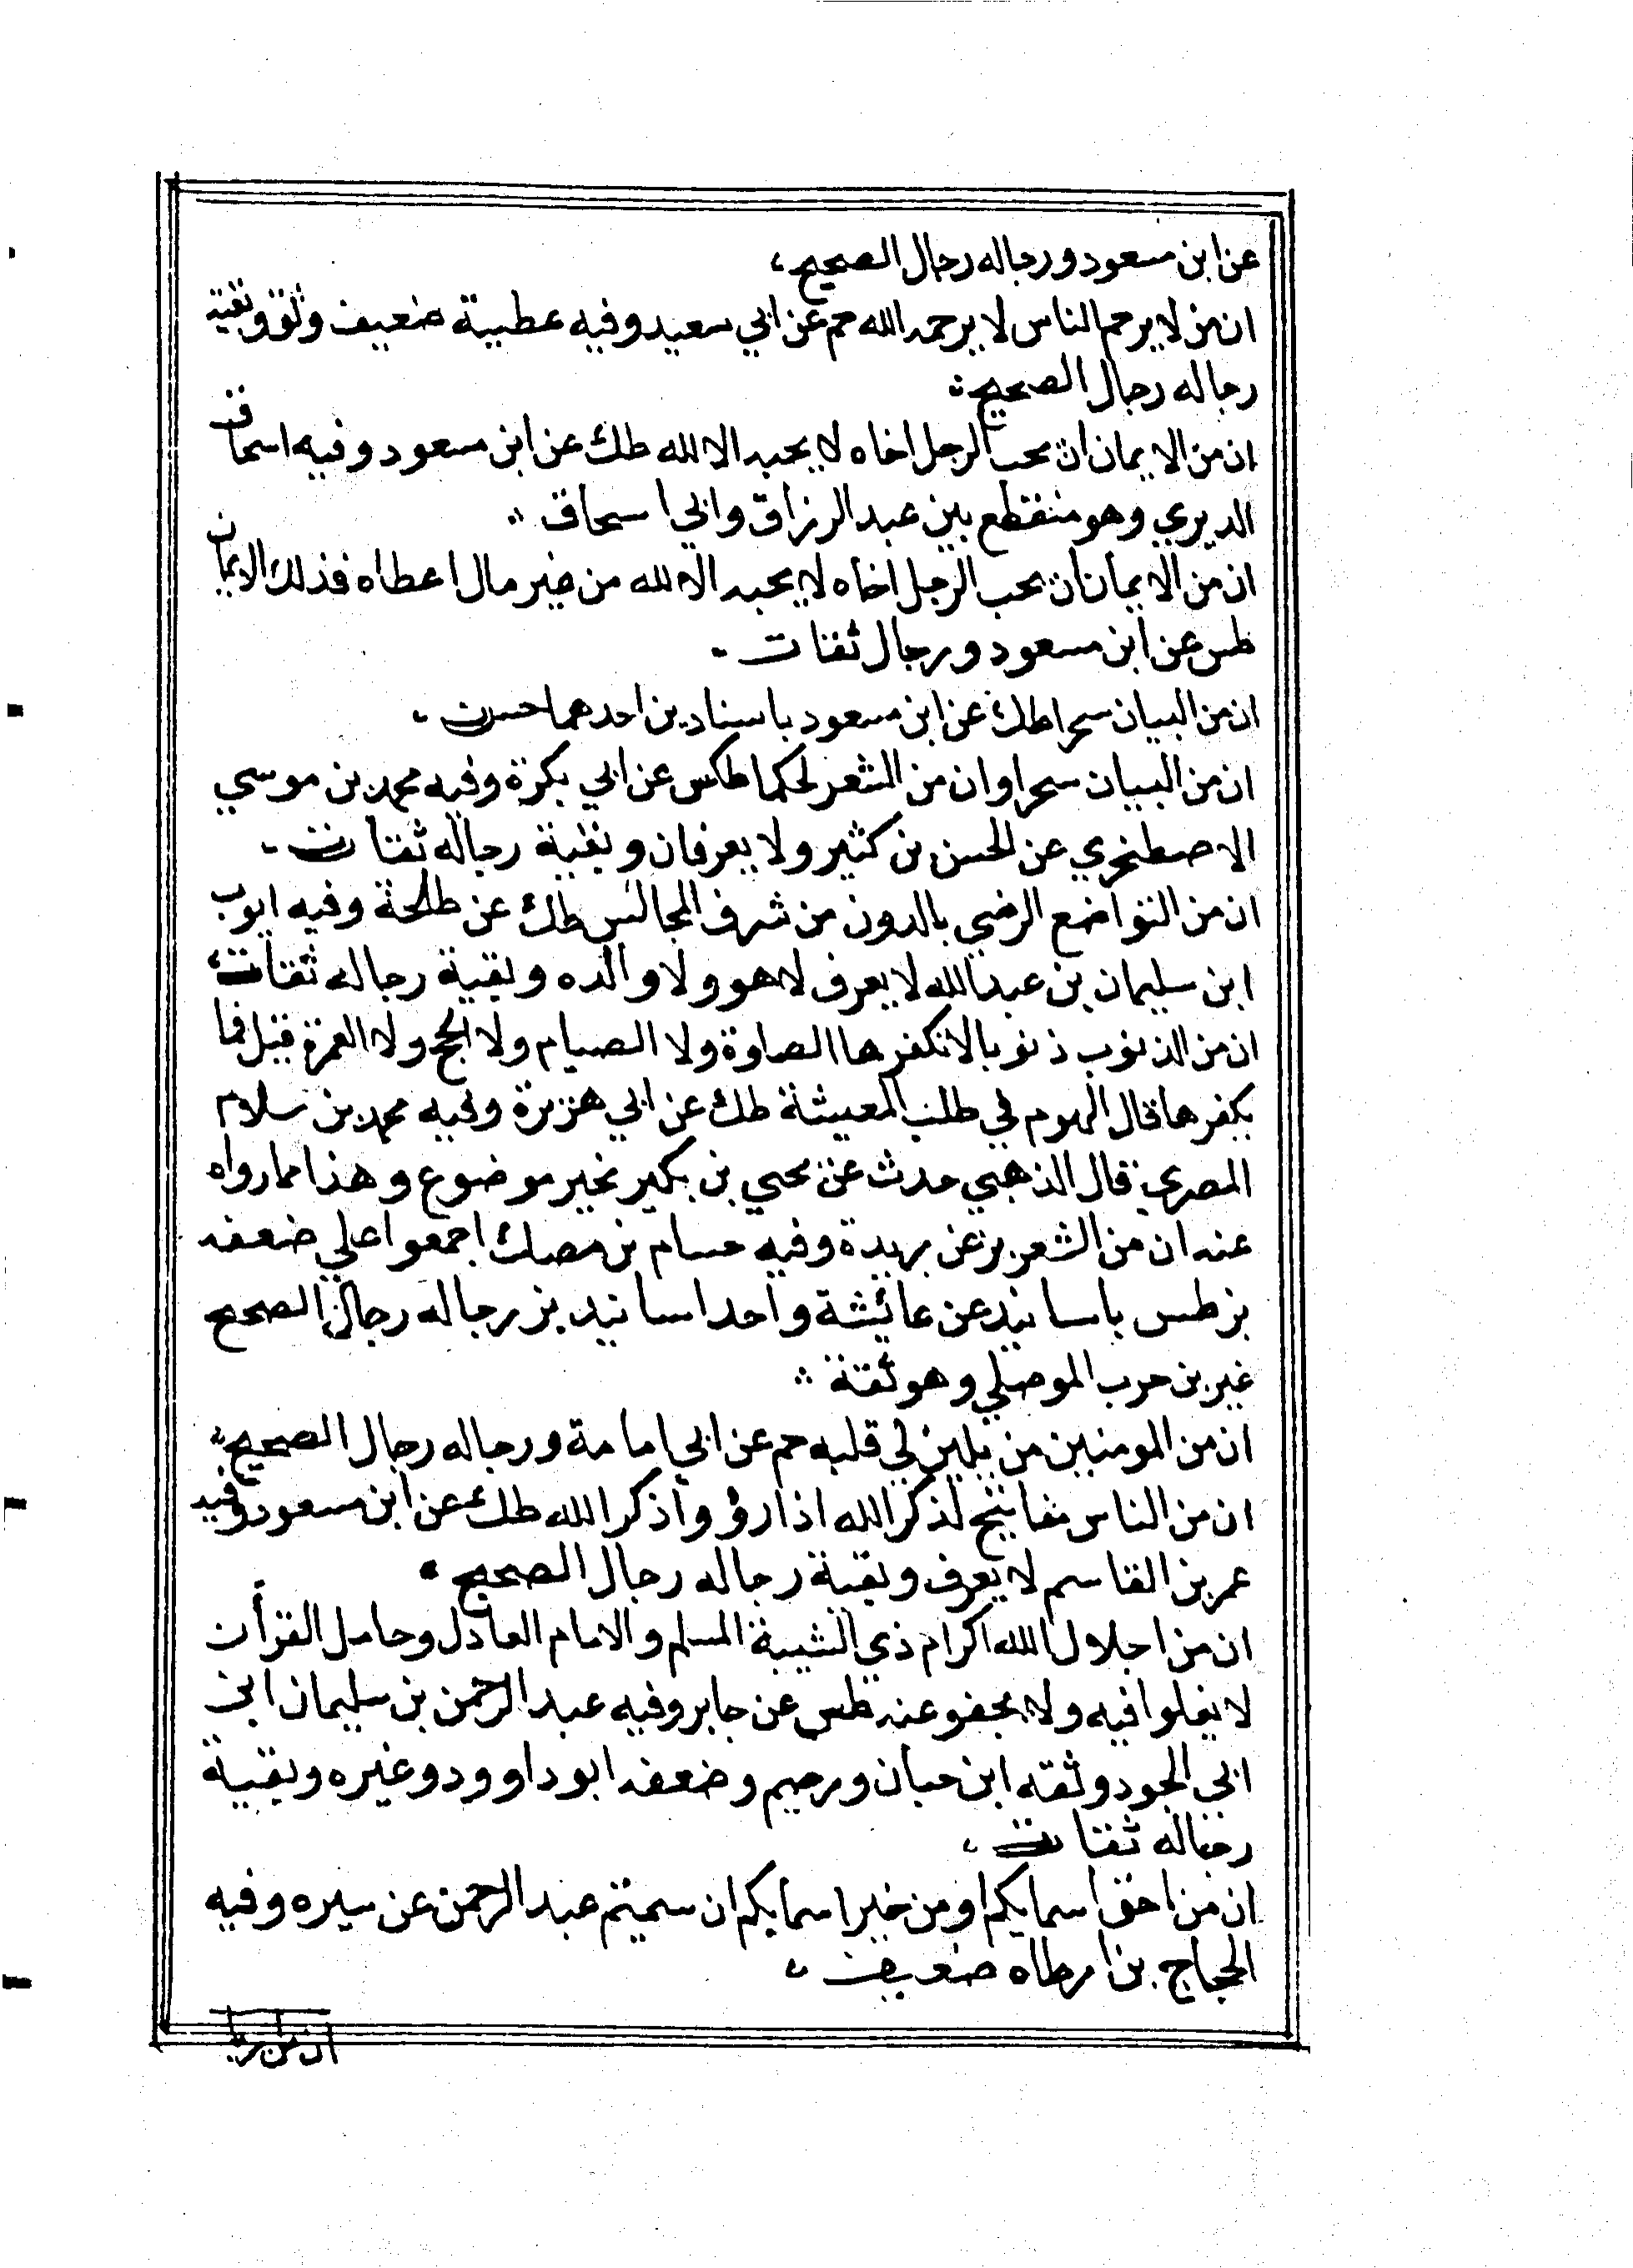 عن ابن مسعود ورجاله رجال الصحيح،
ان من لا يرحم الناس لا يرحمه الله حم عن ابي سعيد وفيه عطيية ضعيف وثق وبقية
رجاله رجال الصحيح
ان من الايمان ان يحب الرجل اخاه لا يحبه الا لله طك عن ابن مسعود وفيه اسحاق
الديري وهو منقطع بين عبد الرزاق وابي اسحاق
ان من الايمان ان يحب الرجل اخاه لا يحبه الا لله من غير مال اعطاه فذلك الايمان
طس عن ابن مسعود ورجال ثقات
ان من البيان سحرا طك عن ابن مسعود باسنادين احدهما حسن
ان من البيان سحرا وان من الشعر لحكما طكس عن ابي بكرة وفيه محمد بن موسي
الاصطخري عن الحسن بن كثير ولا يعرفان وبقية رجاله ثقات
ان من التواضع الرضي بالدون من شرف المجالس طك عن طلحة وفيه ايوب
ابن سليمان بن عبد الله لا يعرف لا هو ولا والده وبقية رجاله ثقات
ان من الذنوب ذنوبا لا تكفرها الصلوة ولا الصيام ولا الحج ولا العمرة قيل فما
يكفرها قال الهموم في طلب المعيشة طك عن ابي هريرة وفيه محمد بن سلام
المصري قال الذهبي حدث عن يحيي بن بكير بخبر موضوع وهذا مما رواه
عنه ان من الشعر بز عن بريدة وفيه حسام بن مصك اجمعوا علي ضعفه
بز طس باسانيد عن عائشة واحد اسانيد بز رجاله رجال الصحيح
غير بن حرب الموصلي وهو ثقة
ان من المومنين من يلين لي قلبه حم عن ابي امامة ورجاله رجال الصحيح
ان من الناس مفاتيح لذكر الله اذا رؤوا ذكر الله طك عن ابن مسعود وفيه
عمر بن القاسم لا يعرف وبقية رجاله رجال الصحيح
ان من اجلال الله اكرام ذي الشيبة المسلم والامام العادل وحامل القرأن
لا يغلوا فيه ولا يجفو عنه طس عن جابر وفيه عبد الرحمن بن سليمان ابن
ابي الجود وثقه ابن حبان ورحيم وضعفه ابو داوود وغيره وبقية
رجاله ثقات
ان من احق اسمايكم او من خير اسمايكم ان سميتم عبد الرحمن عن سبره وفيه
الحجاج بن ارطاه ضعيف
ان من